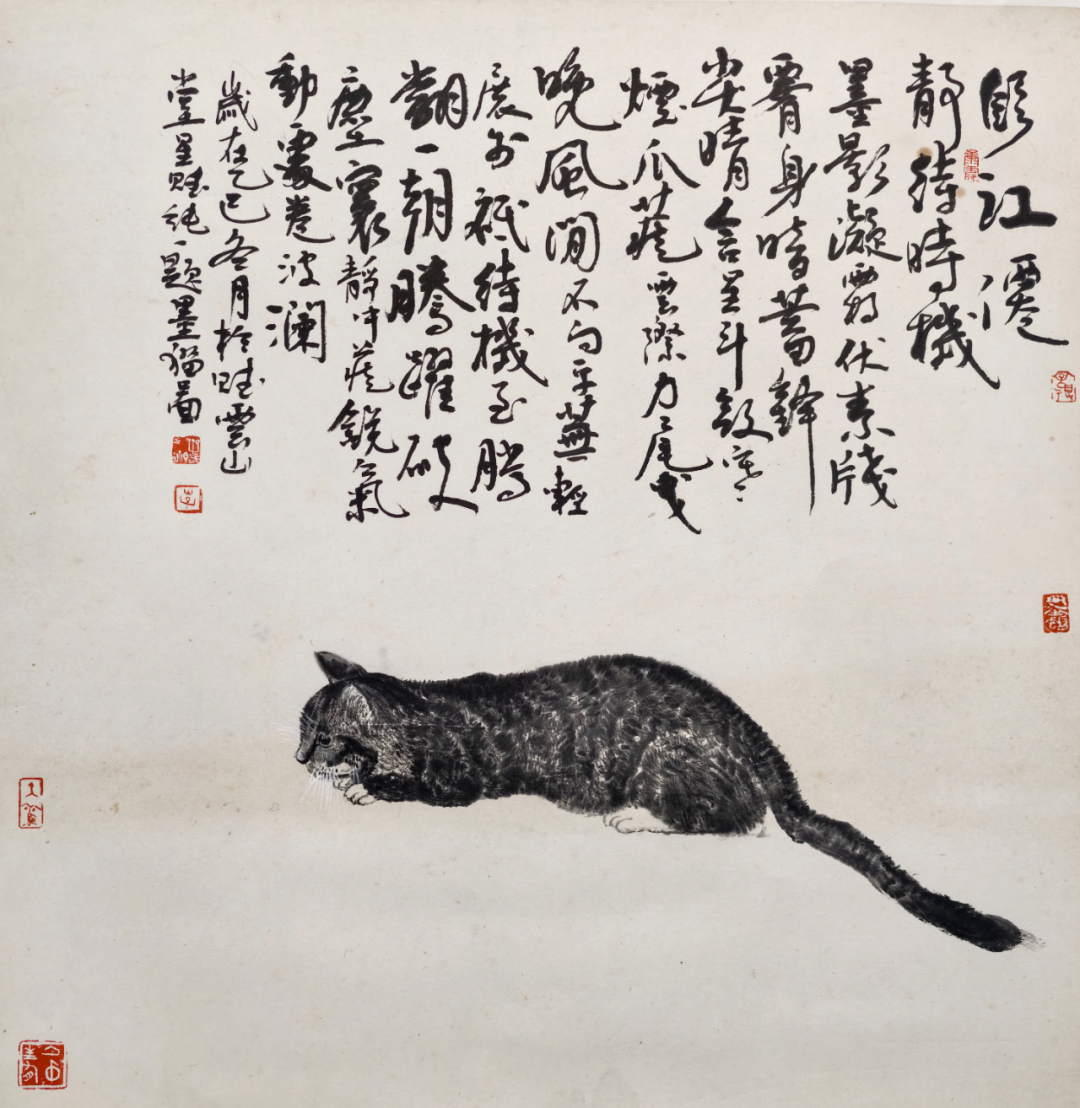 臨江僊
靜待時機
墨影凝霜伏素牋
脊身暗蓄鋒
尖睛含星斗斂寒
煙爪藏雲際力尾曳
晚風閒不向平蕪輕
展步祗待機至騰
翻一朝騰躍破
塵寰靜中藏銳氣
動處卷波瀾
歲在乙巳冬月於賦雲山
堂星賦純一題墨貓圖